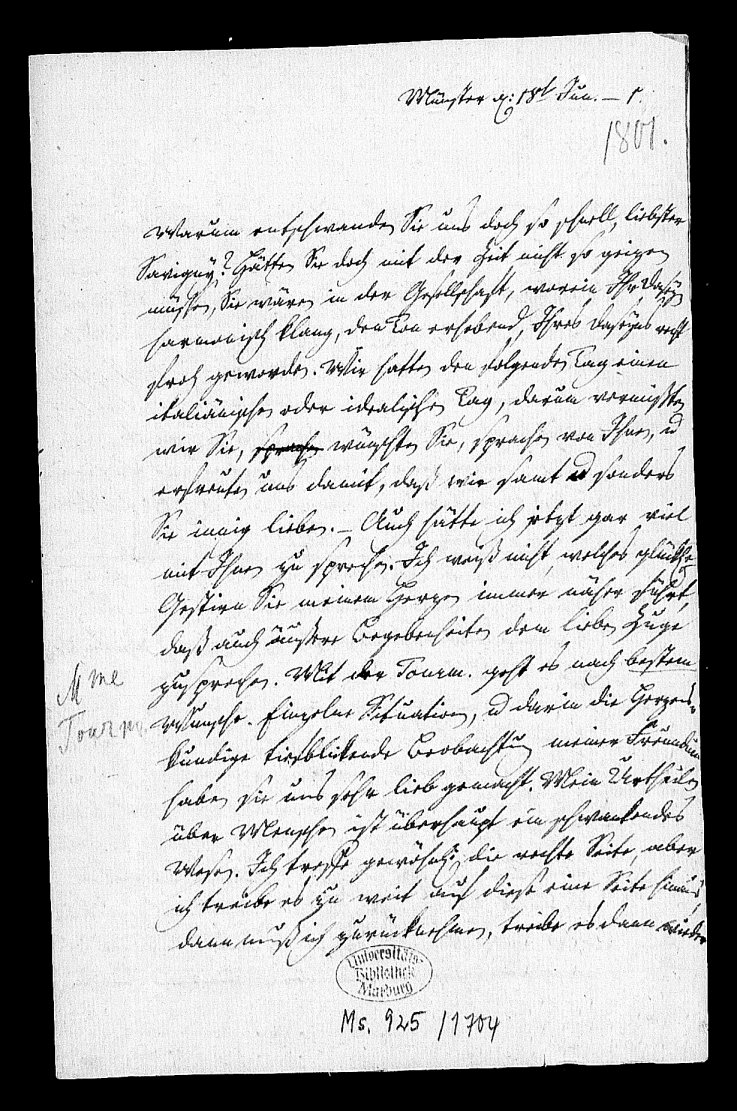 Münster d: 18t Jun. – 1.
1801.
Warum entschwanden Sie uns doch so schnell, liebster
Savigny? Hätten Sie doch mit der Zeit nicht so geizen
müssen, Sie wären in der Gesellschaft, worein Ihr Daseyn
harmonisch klang, den Ton erhebend, Ihres Daseyns recht
froh geworden. Wir hatten den folgenden Tag einen
italiänischen oder idealischen Tag, darum vermißten
wir Sie, sprachen wünschten Sie, sprachen von Ihnen, u
erfreuten uns damit, daß wir samt u sonders
Sie innig lieben. – Auch hätte ich jetzt gar viel
mit Ihnen zu sprechen. Ich weiß nicht, welches glückliche
Gestirn Sie meinem Herzen immer näher führt,
daß auch äußere Begebenheiten dem lieben Zuge
zusprechen. Mit der Tourm. geht es nach bestem
Wunsche. Einzelne Situation, u darin die Herzens-
kundige tiefblickende Beobachtung meiner Freundinn
haben sie uns sehr lieb gemacht. Mein Urtheilen
über Menschen ist überhaupt ein schwankendes
Wesen. Ich treffe gewöhnl. die rechte Seite, aber
ich treibe es zu weit auf diese eine Seite hinaus,
dann muß ich zurücknehmen, treibe es dann wieder
Mme
Tourm.
Universitäts-
Bibliothek
Marburg
Ms. 925/1704